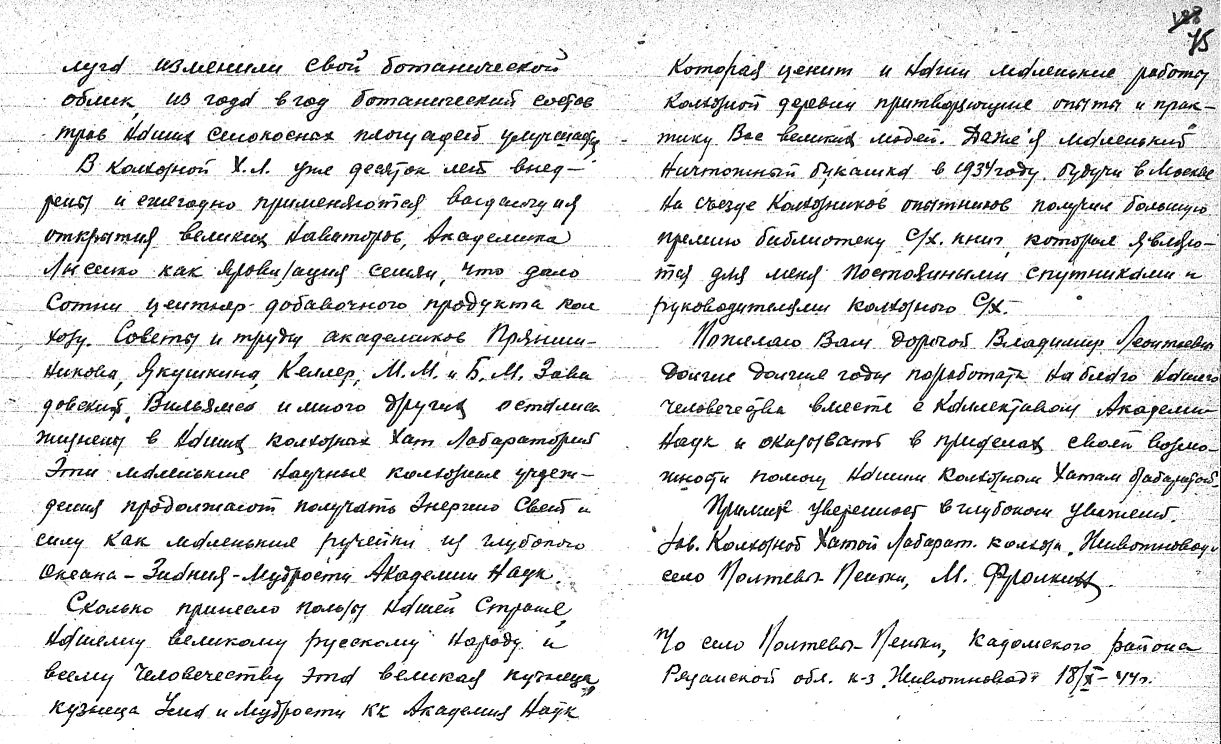 188
75
луга изменили свой ботанической
облик, из года в год ботанический состав
трав наших сенокосных площадей улучшается,
В колхозной Х.Л. уже десяток лет внед-
рены и ежегодно применяются выдающиеся
открытия великих наваторов, Академика
Лысенко как яровизация семян, что дало
Сотни центнер. добавочного продукта кол
хозу. Советы и труды академиков Пряниш-
никова, Якушкина, Келлер, М.М. и Б.М. Зава
довский, Вильямса и много других остались
жизнены в наших колхозных Хат Лабараторий
Эти маленькие научные колхозные учреж-
дения продолжают получать Энергию Свет и
силу как маленькие ручейки из глубокого
Океана – Знания – Мудрости Академии Наук.
Сколько принесло пользы нашей Стране,
нашему великому русскому народу и
всему Человечеству эта великая кузница,
кузница Ума и Мудрости как Академия Наук
которая ценит и наши маленькие работы
колхозной деревни притворяющие опыты и прак-
тику Вас великих людей. Даже я маленький
Ничтожный букашка в 1934 году, будучи в Москве
на съезде Колхозников опытников получил большую
премию библиотеку с/х. книг, которые являю-
тся для меня постоянными спутниками и
руководителями колхозного С/Х.
Пожелаю Вам дорогой Владимир Леонтьевич
Долгие долгие годы поработать на благо нашего
человечества вместе с коллективом Академии
Наук и оказывать в пределах своей возмо-
жности помощь нашим колхозным Хатам Лабараторий.
Примите уверение в глубоком уважении.
Зав. Колхозной Хатой Лабарат. колхоза „Животновод“
село Полтевы-Пеньки, М. Фролкин
П/о село Полтевы-Пеньки, Кадомского района
Рязанской обл. к-з „Животновод“ 18/X–44г.